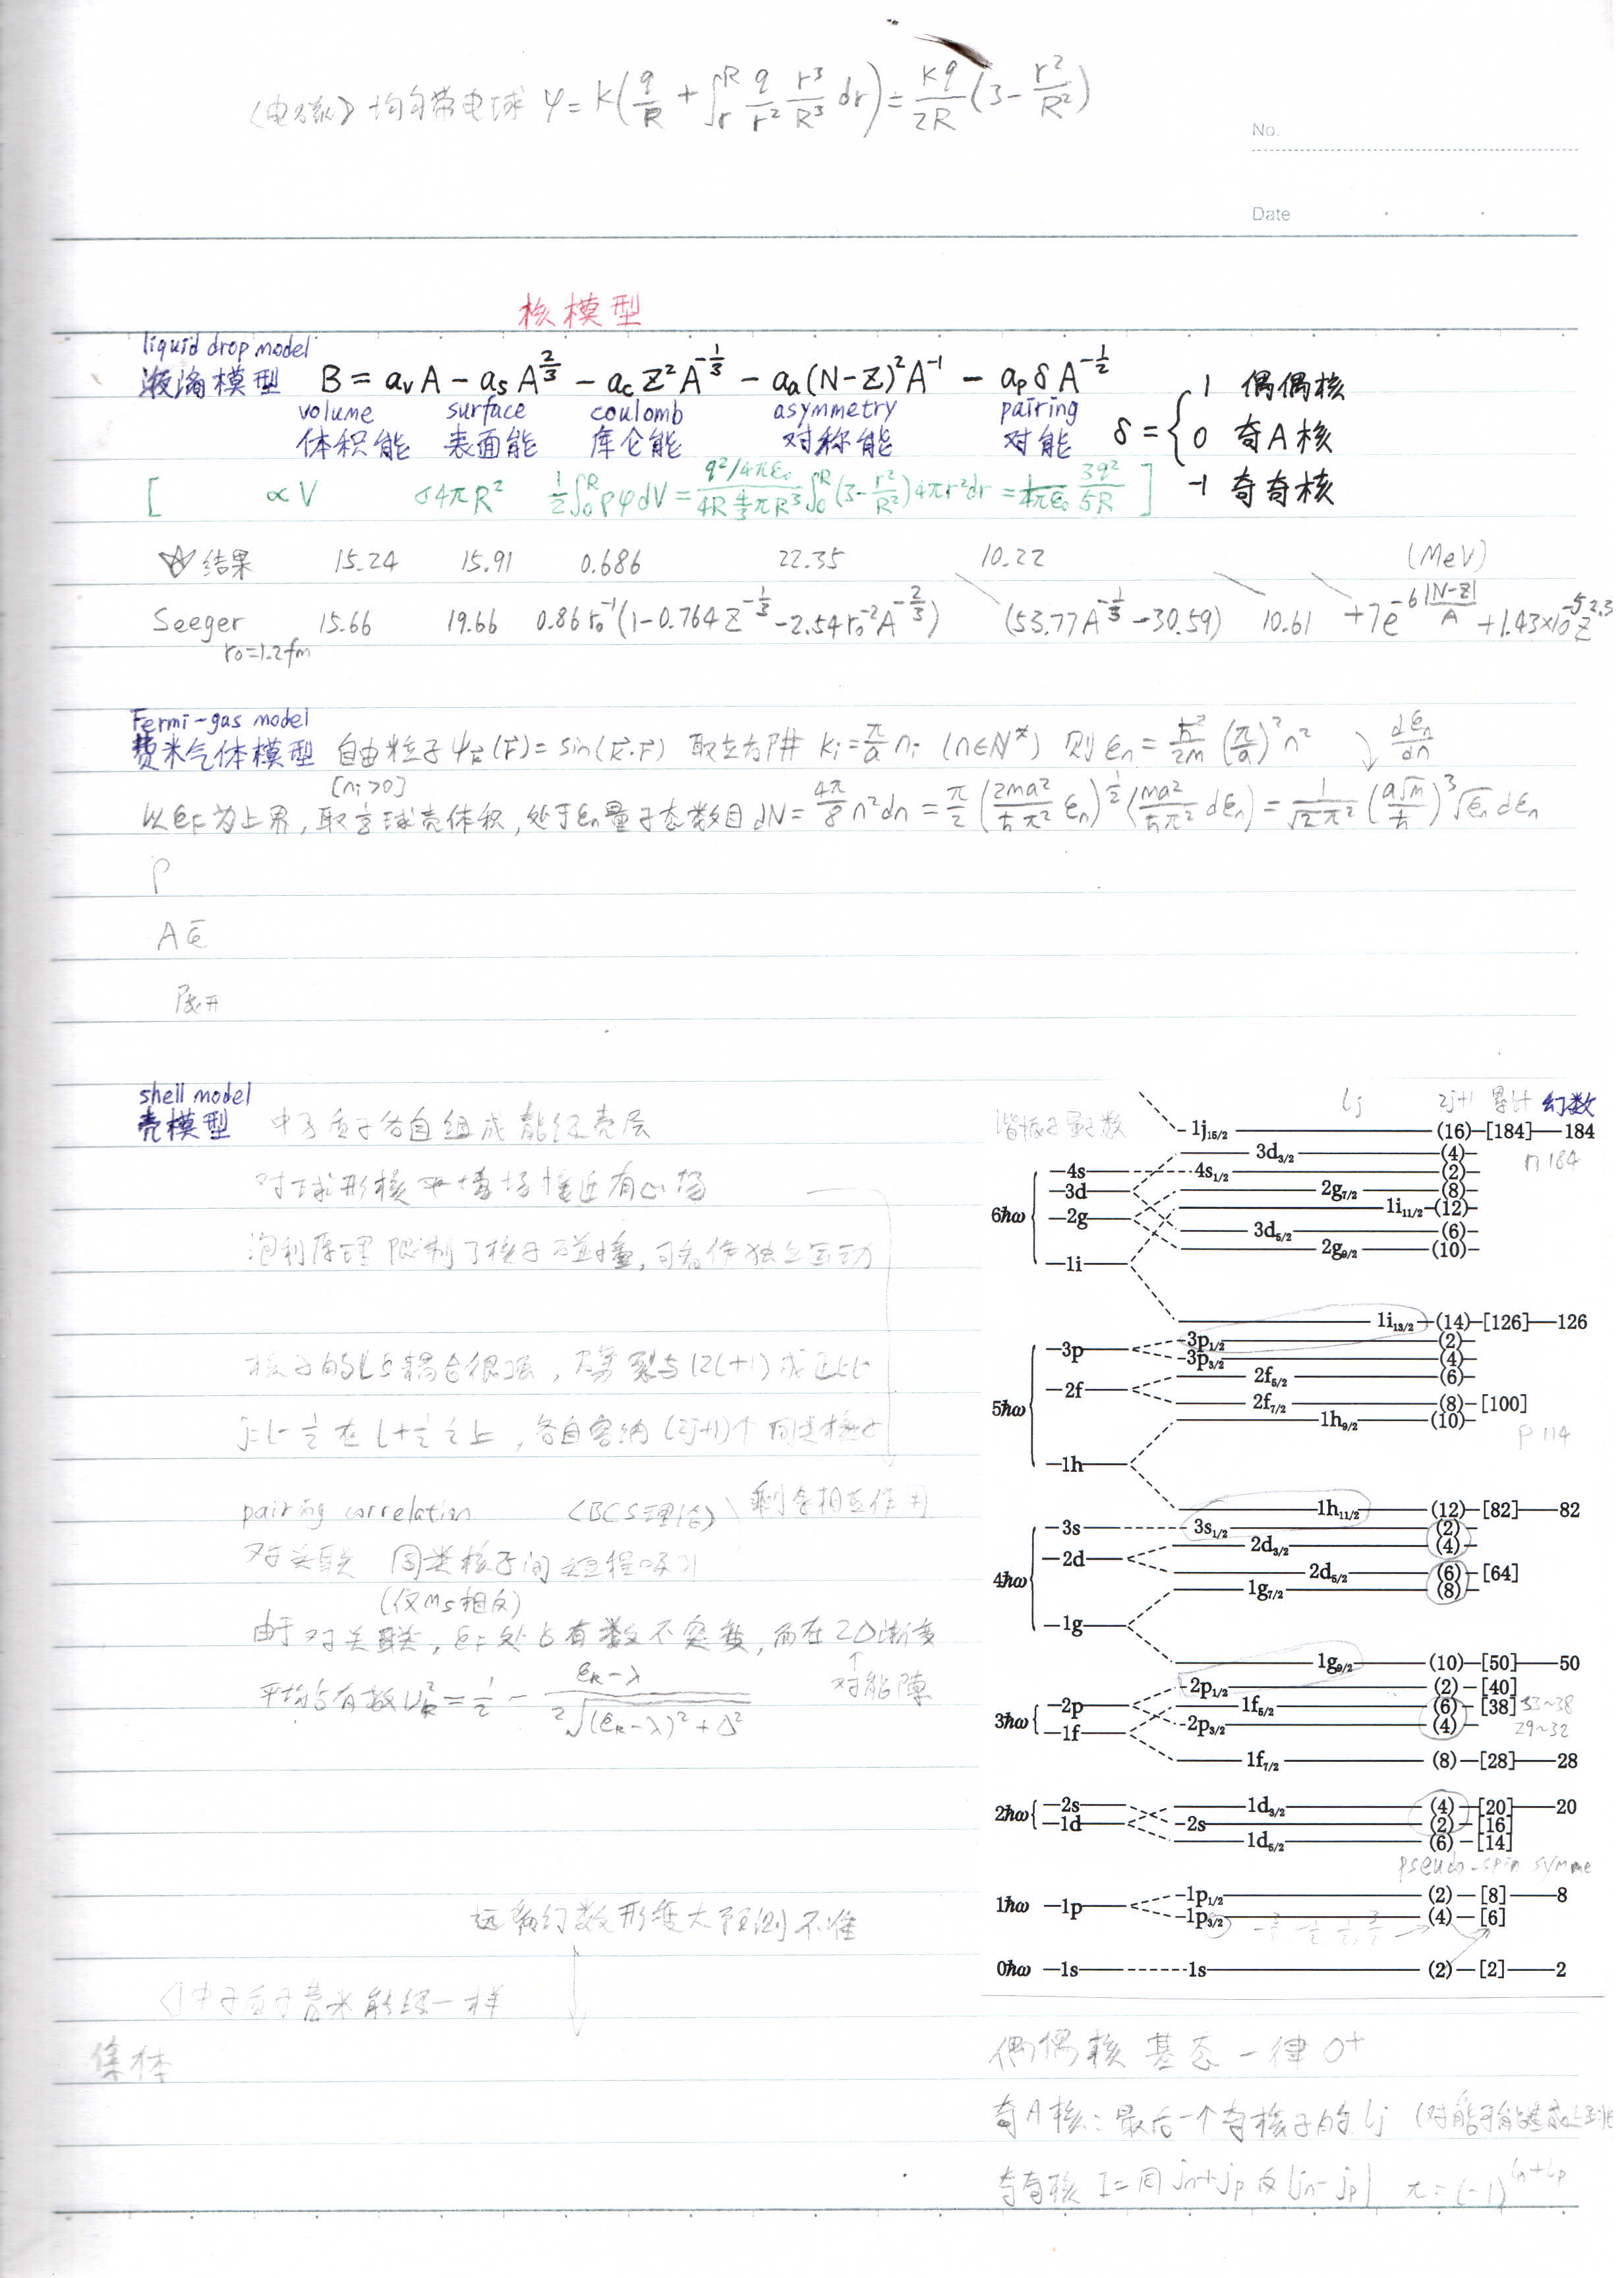 〈电磁〉均匀带电球 φ = k(q/R + ∫_r^R q/r² r³/R³ dr) = kq/2R (3 - r²/R²)
No.
Date
核模型
liquid drop model
液滴模型 B = a_v A - a_s A^{2/3} - a_c Z² A^{-1/3} - a_a (N-Z)² A^{-1} - a_p δ A^{-1/2}
volume surface coulomb asymmetry pairing
体积能 表面能 库仑能 对称能 对能 δ = { 1 偶偶核
0 奇A核
-1 奇奇核
[ ∝V σ4πR² ½∫_0^R ρφdV = (q²/4πε₀)/(4R 4/3 πR³) ∫_0^R (3 - r²/R²) 4πr²dr = 1/4πε₀ 3q²/5R ]
☆ 结果 15.24 15.91 0.686 22.35 10.22 (MeV)
Seeger 15.66 19.66 0.86 r₀^{-1}(1-0.764 Z^{-1/3} - 2.54 r₀^{-2} A^{-2/3}) (53.77A^{-1/3} - 30.59) 10.61 + 7e^{-6|N-Z|/A} + 1.43×10^{-5} Z^{2.3}
r₀=1.2fm
Fermi-gas model
费米气体模型 自由粒子 ψ_k(r) = sin(k·r) 取立方阱 k_i = π/a n_i (n∈N*) 则 ε_n = ħ²/2m (π/a)² n² dε_n/dn
[n_i>0]
以 ε_F 为上界, 取 球壳体积, 处于 ε_n 量子态数目 dN = 4π/8 n²dn = π/2 (2ma²/ħπ² ε_n)^{1/2} (ma²/ħπ² dε_n) = 1/√2π² (a√m/ħ)³ √ε_n dε_n
ρ
A ε̄
展开
shell model
壳模型 中子质子各自组成能级壳层
对球形核平均场接近有心场
泡利原理限制了核子碰撞, 可看作独立运动
核子的LS耦合很强, 劈裂与(2l+1)成正比
j=l-½ 在 l+½ 之上, 各自容纳(2j+1)个同类核子
pairing correlation (BCS理论) 剩余相互作用
对关联 同类核子间短程吸引
(仅ms相反)
由于对关联, ε_F处占有数不突变, 而在2Δ渐变
对能隙
平均占有数 υ_k² = ½ - (ε_k-λ)/(2√((ε_k-λ)²+Δ²))
远离幻数形变大预测不准
中子质子费米能级一样
集体
谐振子量子数 lj 2j+1 累计 幻数
1j15/2 (16) [184] 184
3d3/2 (4)
n 184
4s 4s1/2 (2)
3d 2g7/2 (8)
6ħω 1i11/2 (12)
2g 3d5/2 (6)
2g9/2 (10)
1i
1i13/2 (14) [126] 126
3p 3p1/2 (2)
3p3/2 (4)
2f 2f5/2 (6)
5ħω 2f7/2 (8) [100]
1h9/2 (10)
p 114
1h
1h11/2 (12) [82] 82
3s 3s1/2 (2)
2d 2d3/2 (4)
4ħω 2d5/2 (6) [64]
1g7/2 (8)
1g
1g9/2 (10) [50] 50
2p1/2 (2) [40]
2p 1f5/2 (6) [38] 33~38
3ħω 2p3/2 (4) 29~32
1f
1f7/2 (8) [28] 28
2s 1d3/2 (4) [20] 20
2ħω 1d 2s (2) [16]
1d5/2 (6) [14]
pseudo-spin symme
1p1/2 (2) [8] 8
1ħω 1p 1p3/2 (4) [6]
-3/2 -1/2 1/2 3/2
0ħω 1s 1s (2) [2] 2
偶偶核 基态一律 0+
奇A核: 最后一个奇核子的 lj
奇奇核 I = 同 jn+jp 反 |jn-jp| π = (-1)^{ln+lp}